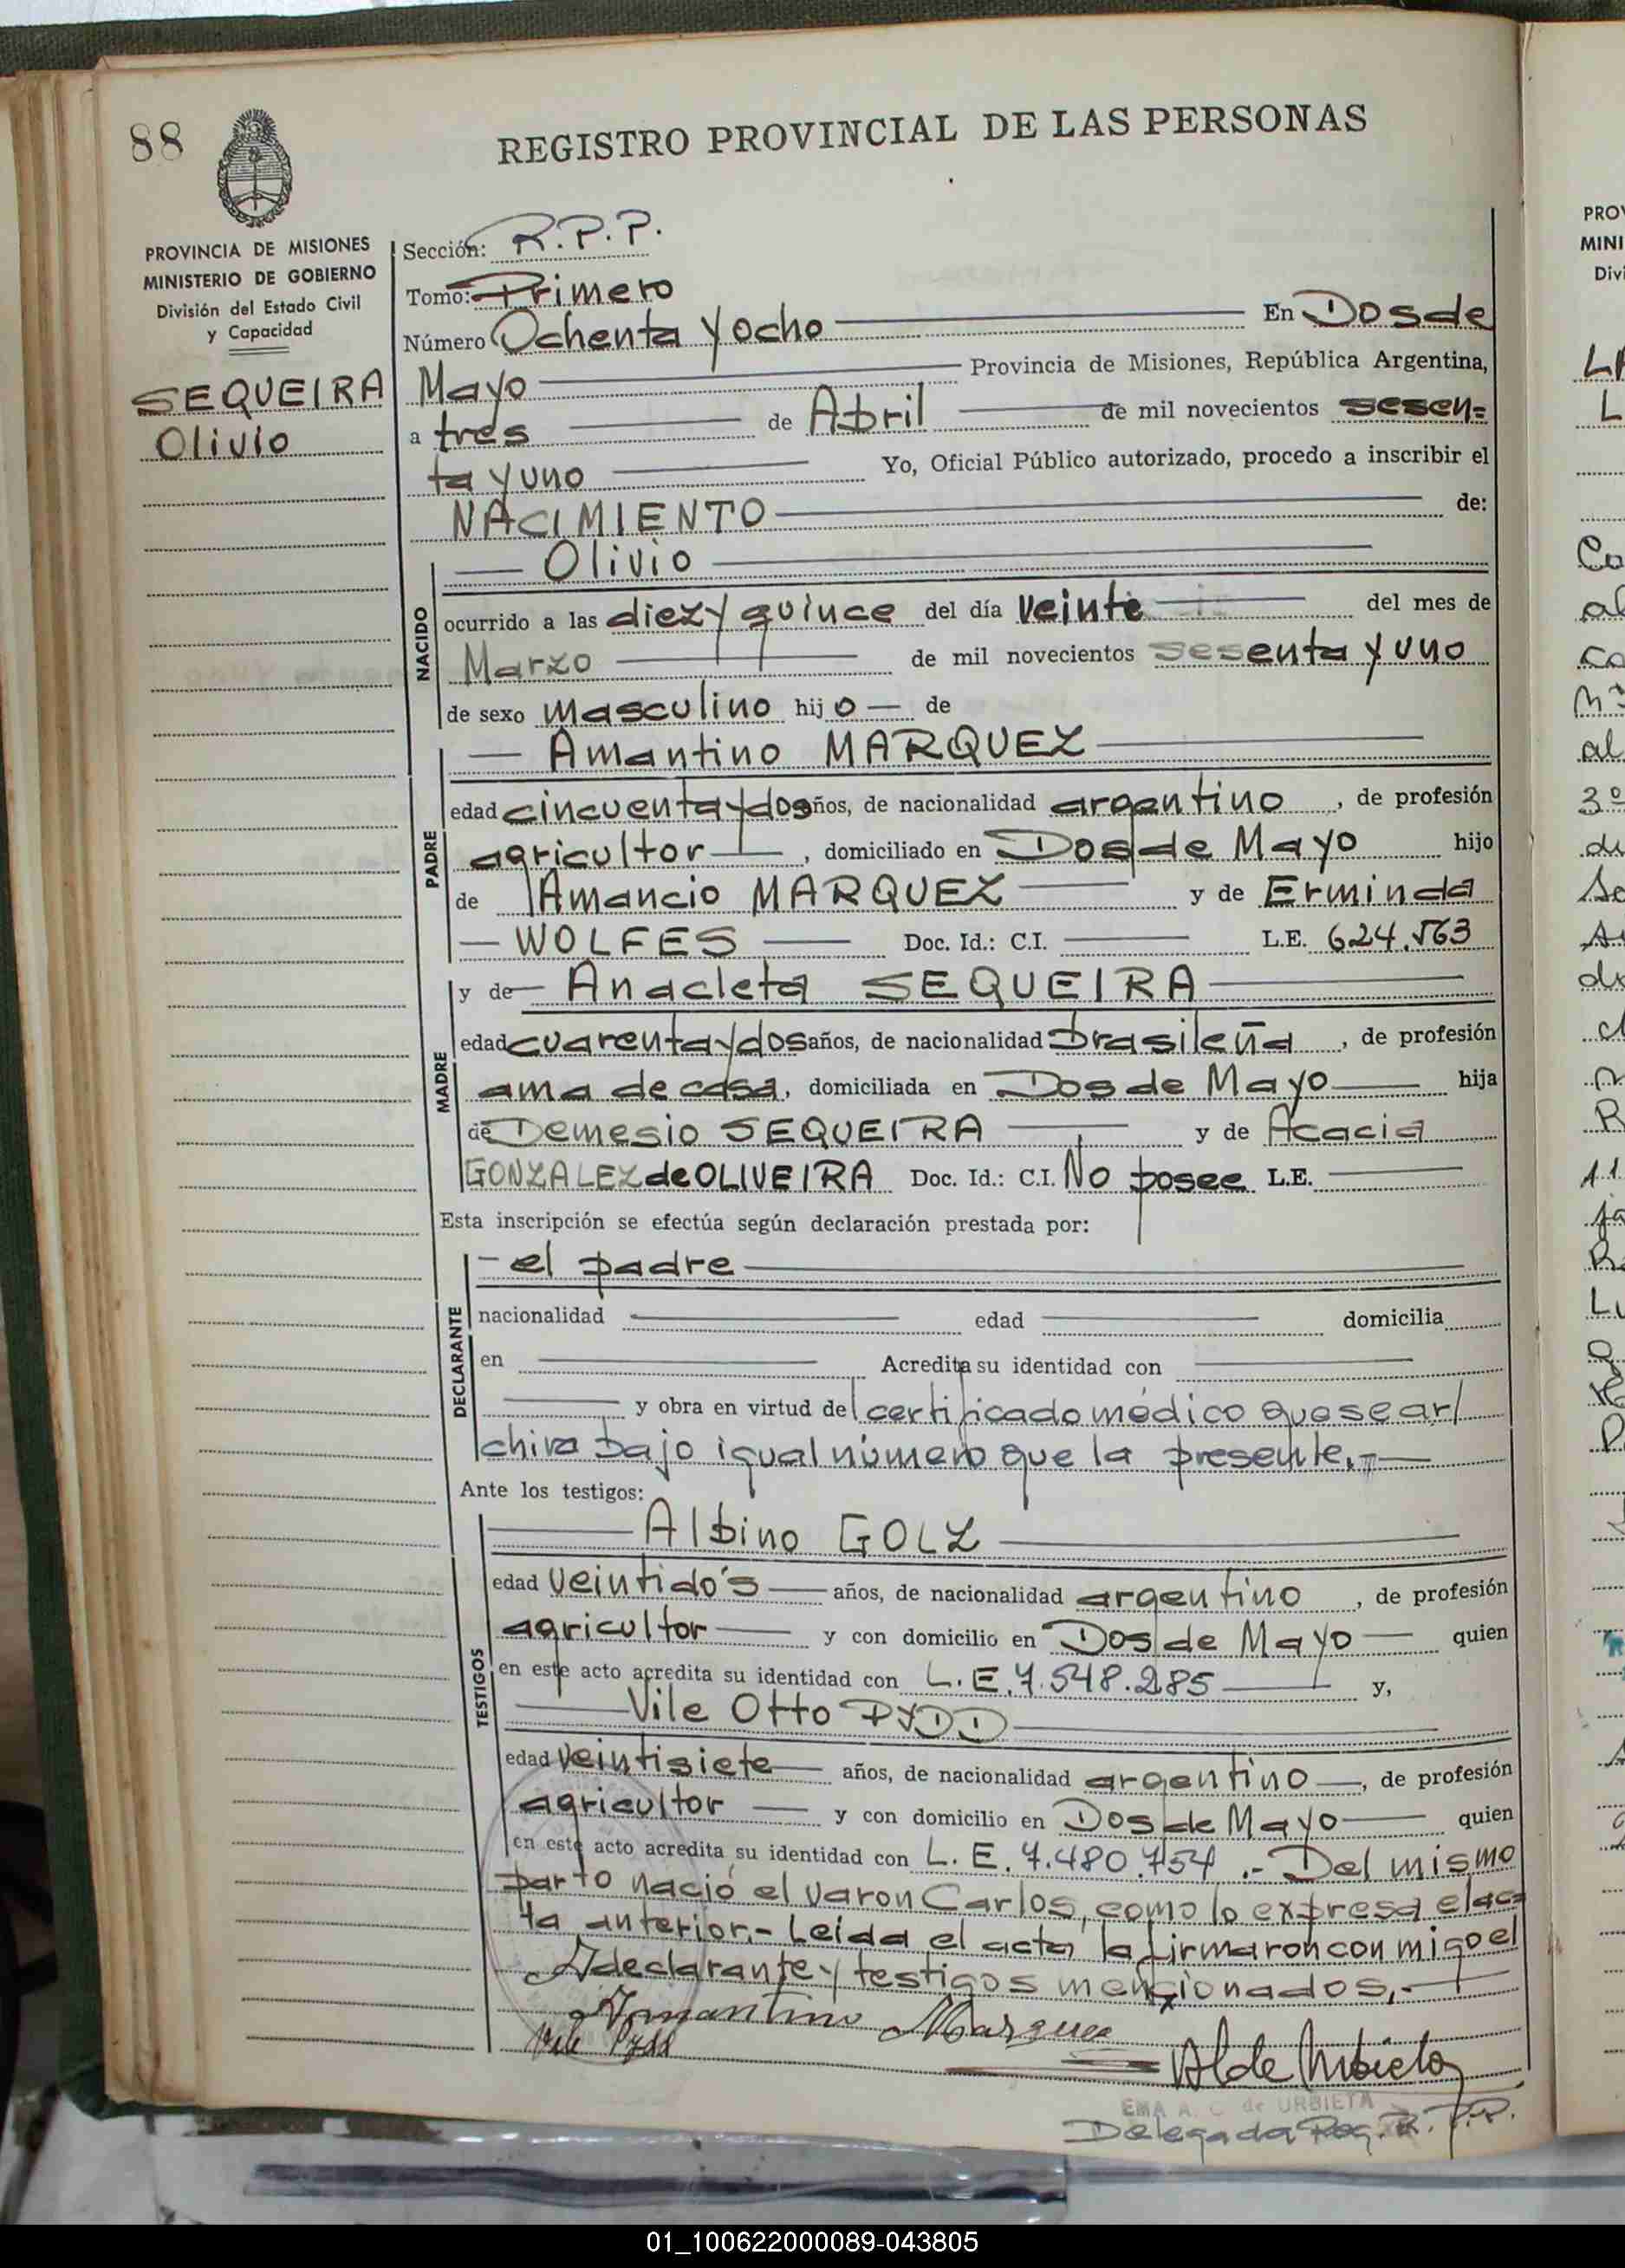 88
REGISTRO PROVINCIAL DE LAS PERSONAS
PROVINCIA DE MISIONES
MINISTERIO DE GOBIERNO
División del Estado Civil
y Capacidad
SEQUEIRA
Olivio
Sección: R.P.P.
Tomo: Primero
Número Ochenta y ocho En Dos de
Mayo Provincia de Misiones, República Argentina,
a tres de Abril de mil novecientos sesen=
ta y uno Yo, Oficial Público autorizado, procedo a inscribir el
NACIMIENTO de:
NACIDO
Olivio
ocurrido a las diez y quince del día veinte del mes de
Marzo de mil novecientos sesenta y uno
de sexo masculino hijo de
PADRE
Amantino MARQUEZ
edad cincuenta y dos años, de nacionalidad argentino, de profesión
agricultor, domiciliado en Dos de Mayo hijo
de Amancio MARQUEZ y de Erminda
WOLFES Doc. Id.: C.I. L.E. 624.563
MADRE
y de Anacleta SEQUEIRA
edad cuarenta y dos años, de nacionalidad brasileña, de profesión
ama de casa, domiciliada en Dos de Mayo hija
de Demesio SEQUEIRA y de Acacia
GONZALEZ de OLIVEIRA Doc. Id.: C.I. No posee L.E.
Esta inscripción se efectúa según declaración prestada por:
DECLARANTE
- el padre
nacionalidad edad domicilia
en Acredita su identidad con
y obra en virtud del certificado médico que se ar/
chiva bajo igual número que la presente.-
Ante los testigos:
TESTIGOS
Albino GOLZ
edad veintidós años, de nacionalidad argentino, de profesión
agricultor y con domicilio en Dos de Mayo quien
en este acto acredita su identidad con L.E. 7.548.285 y,
Vile Otto PYDD
edad veintisiete años, de nacionalidad argentino, de profesión
agricultor y con domicilio en Dos de Mayo quien
en este acto acredita su identidad con L.E. 7.480.754 .- Del mismo
parto nació el varon Carlos, como lo expresa el ac=
ta anterior.- Leída el acta, la firmaron conmigo el
declarante y testigos mencionados.-
Amantino Marquez
Vile Pydd
EMA A. C. de URBIETA
Delegada Reg. R.P.P.
PROV
MINI
Divi
01_100622000089-043805